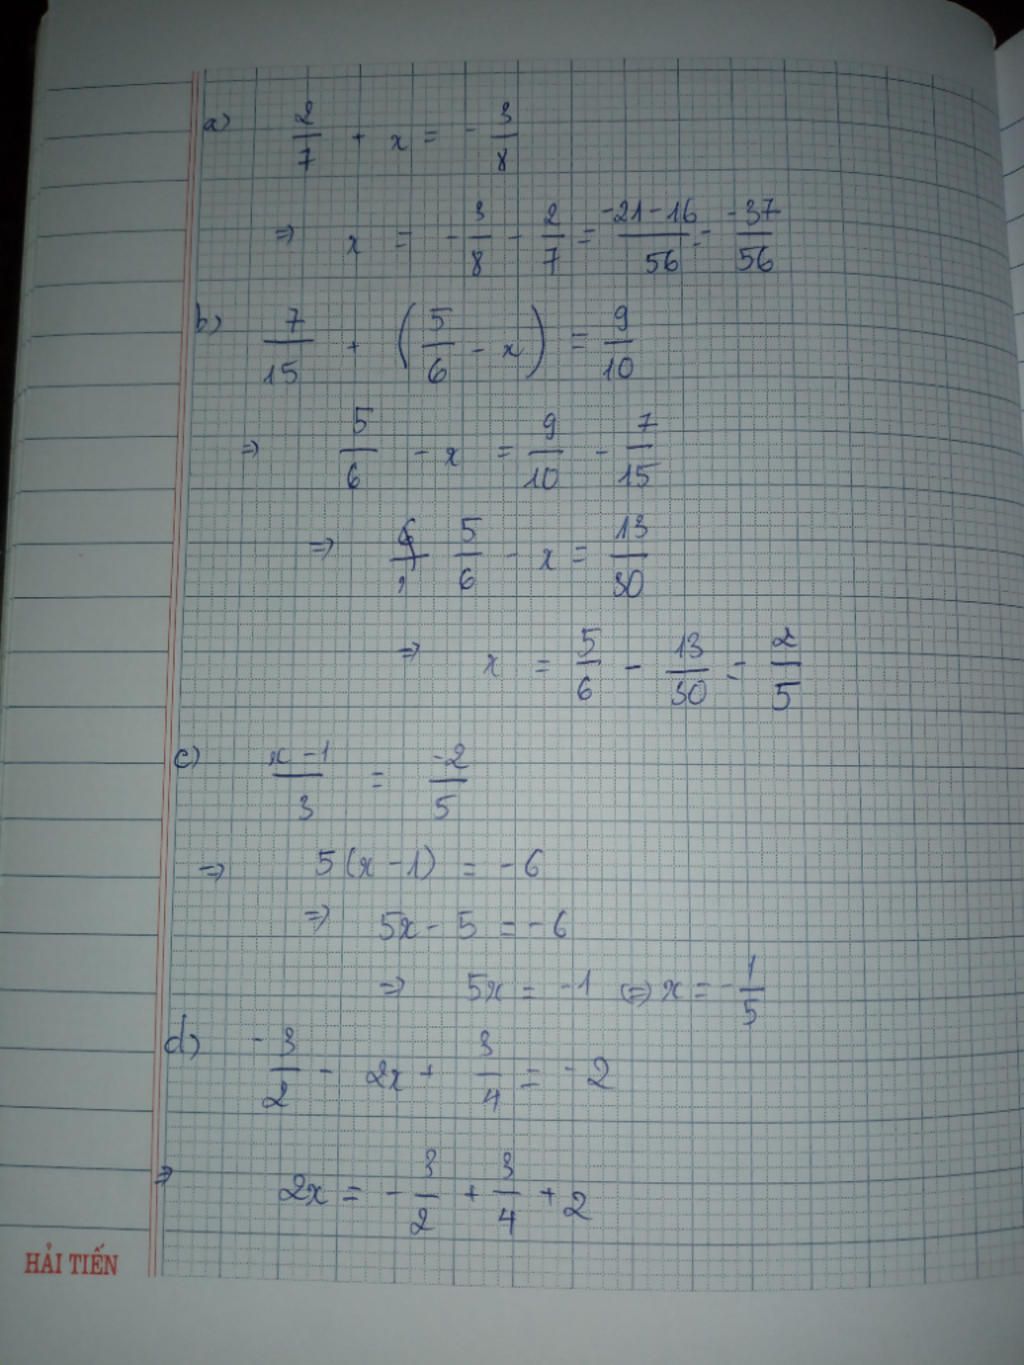 a) 2/7 + x = - 3/8
=> x = - 3/8 - 2/7 = -21-16/56 = -37/56
b) 7/15 + (5/6 - x) = 9/10
=> 5/6 - x = 9/10 - 7/15
=> 5/6 - x = 13/30
=> x = 5/6 - 13/30 = 2/5
c) x-1/3 = -2/5
=> 5(x-1) = -6
=> 5x - 5 = -6
=> 5x = -1 <=> x = - 1/5
d) - 3/2 - 2x + 3/4 = -2
=> 2x = - 3/2 + 3/4 + 2
HẢI TIẾN